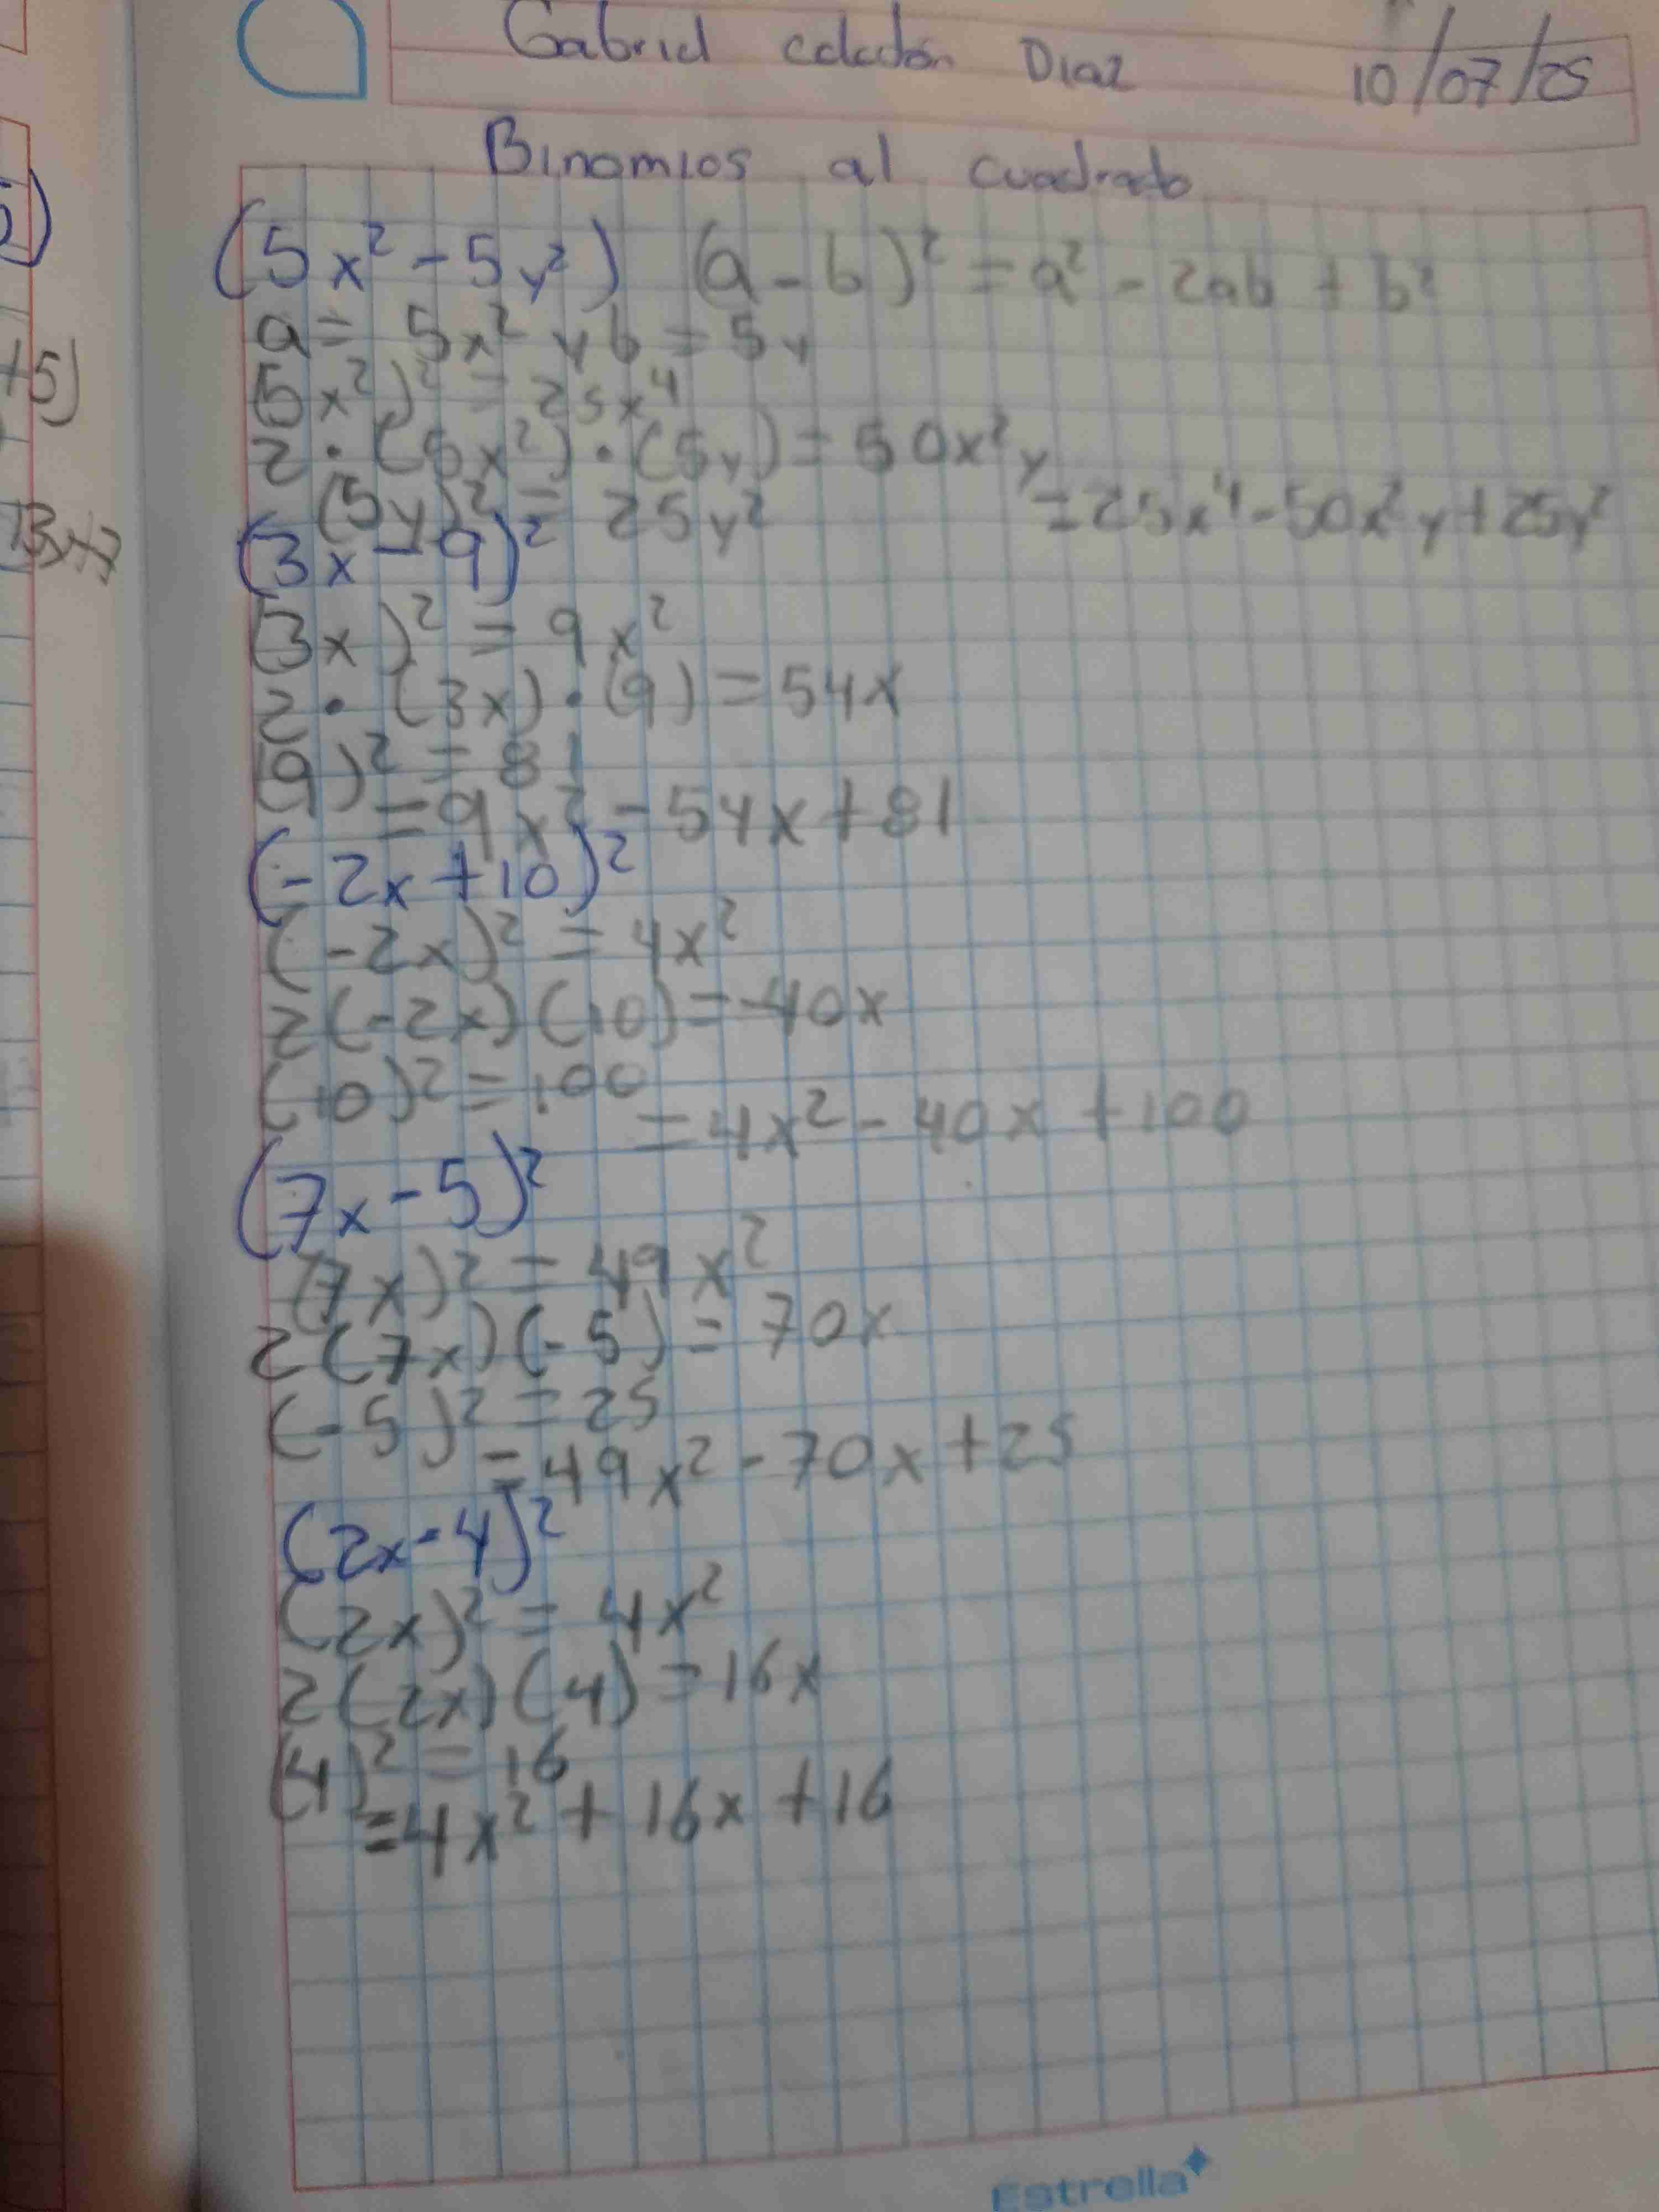 Gabriel Diaz 10/07/25
Binomios al cuadrado
(5x² - 5y²) (a - b)² = a² - 2ab + b²
a = 5x² y b = 5y
(5x²)² = 25x⁴
2 · (5x²) · (5y) = 50x²y
(5y)² = 25y² = 25x⁴ - 50x²y + 25y²
(3x - 9)²
(3x)² = 9x²
2 · (3x) · (9) = 54x
(9)² = 81
= 9x² - 54x + 81
(-2x + 10)²
(-2x)² = 4x²
2(-2x)(10) = -40x
(10)² = 100
= 4x² - 40x + 100
(7x - 5)²
(7x)² = 49x²
2(7x)(-5) = 70x
(-5)² = 25
= 49x² - 70x + 25
(2x - 4)²
(2x)² = 4x²
2(2x)(4) = 16x
(4)² = 16
= 4x² + 16x + 16
Estrella
+5)